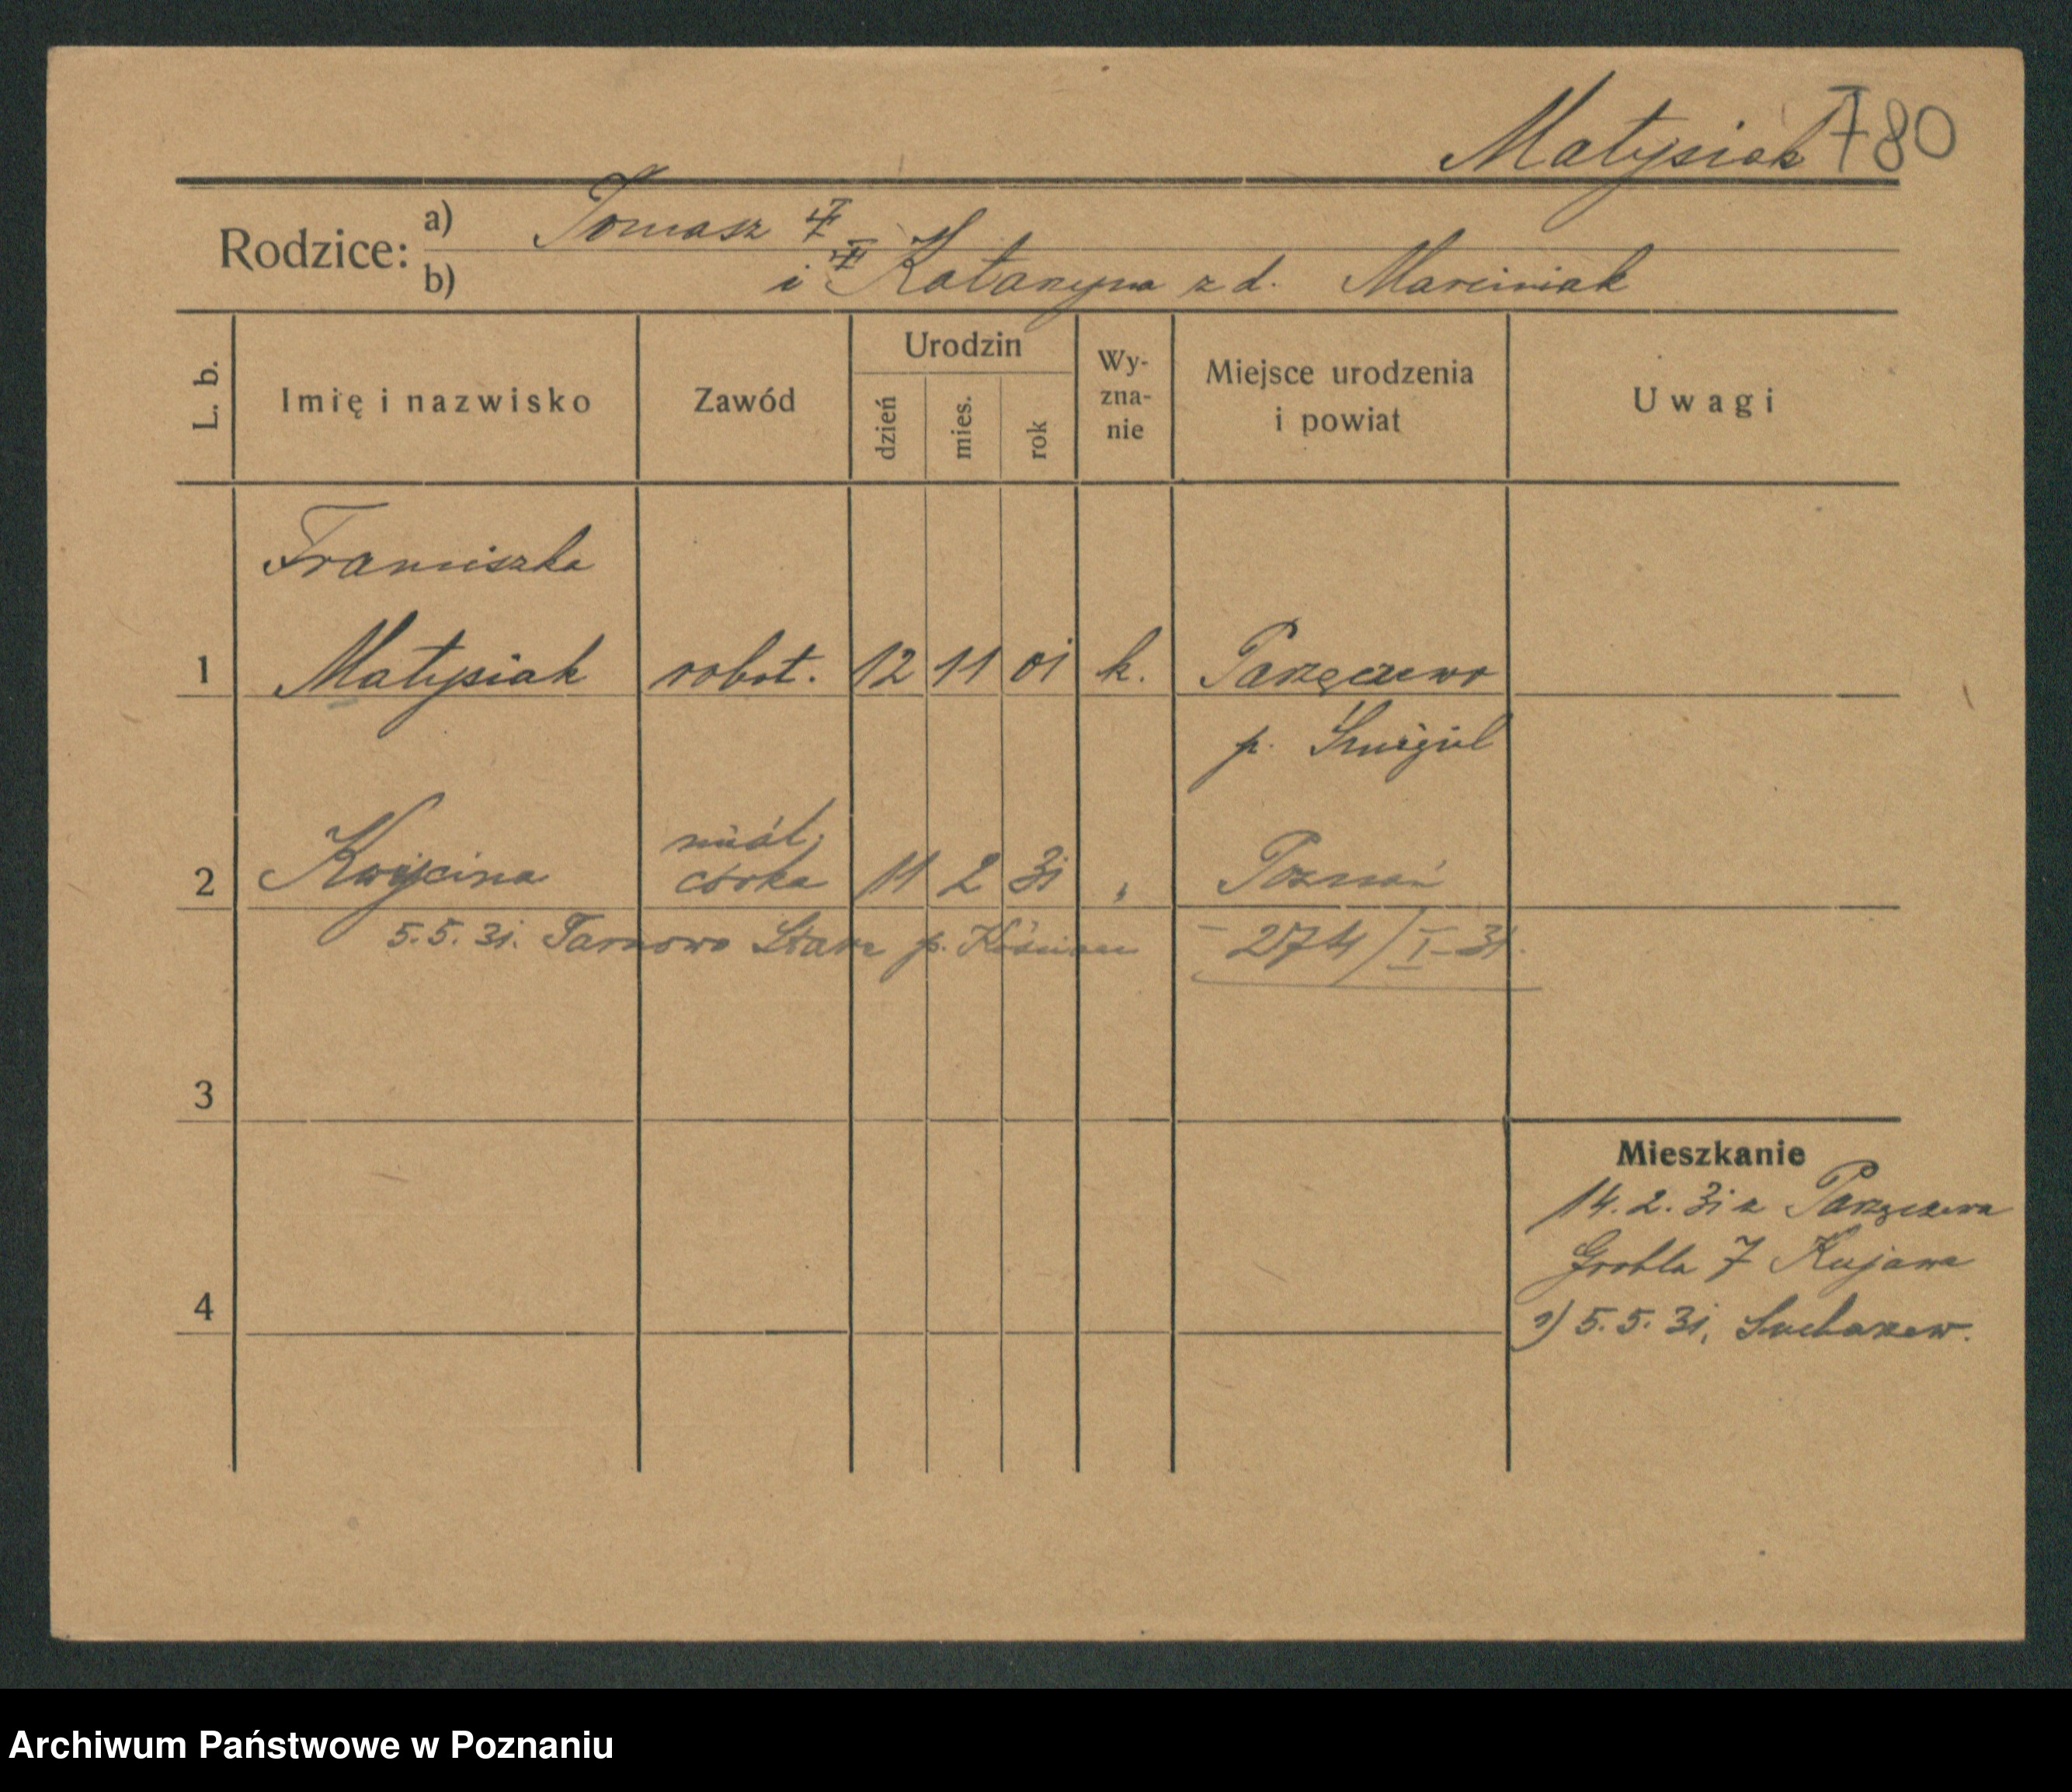 Matysiak 780
Rodzice: a) Tomasz
b) i Katarzyna z d. Marciniak
L. b. Imię i nazwisko Zawód Urodzin dzień mies. rok Wy-zna-nie Miejsce urodzenia i powiat Uwagi
Franciszka
1 Matysiak robot. 12 11 01 k. Parzęczewo
p. Śmigiel
nieśl.
2 córka 11 2 31 " Poznań
5.5.31. Tarnowo Stare p. Kościan 274/I-31.
3
Mieszkanie
14.2.31 z Parzęczewa
Grobla 7 Kujawa
4
2) 5.5.31,
Archiwum Państwowe w Poznaniu